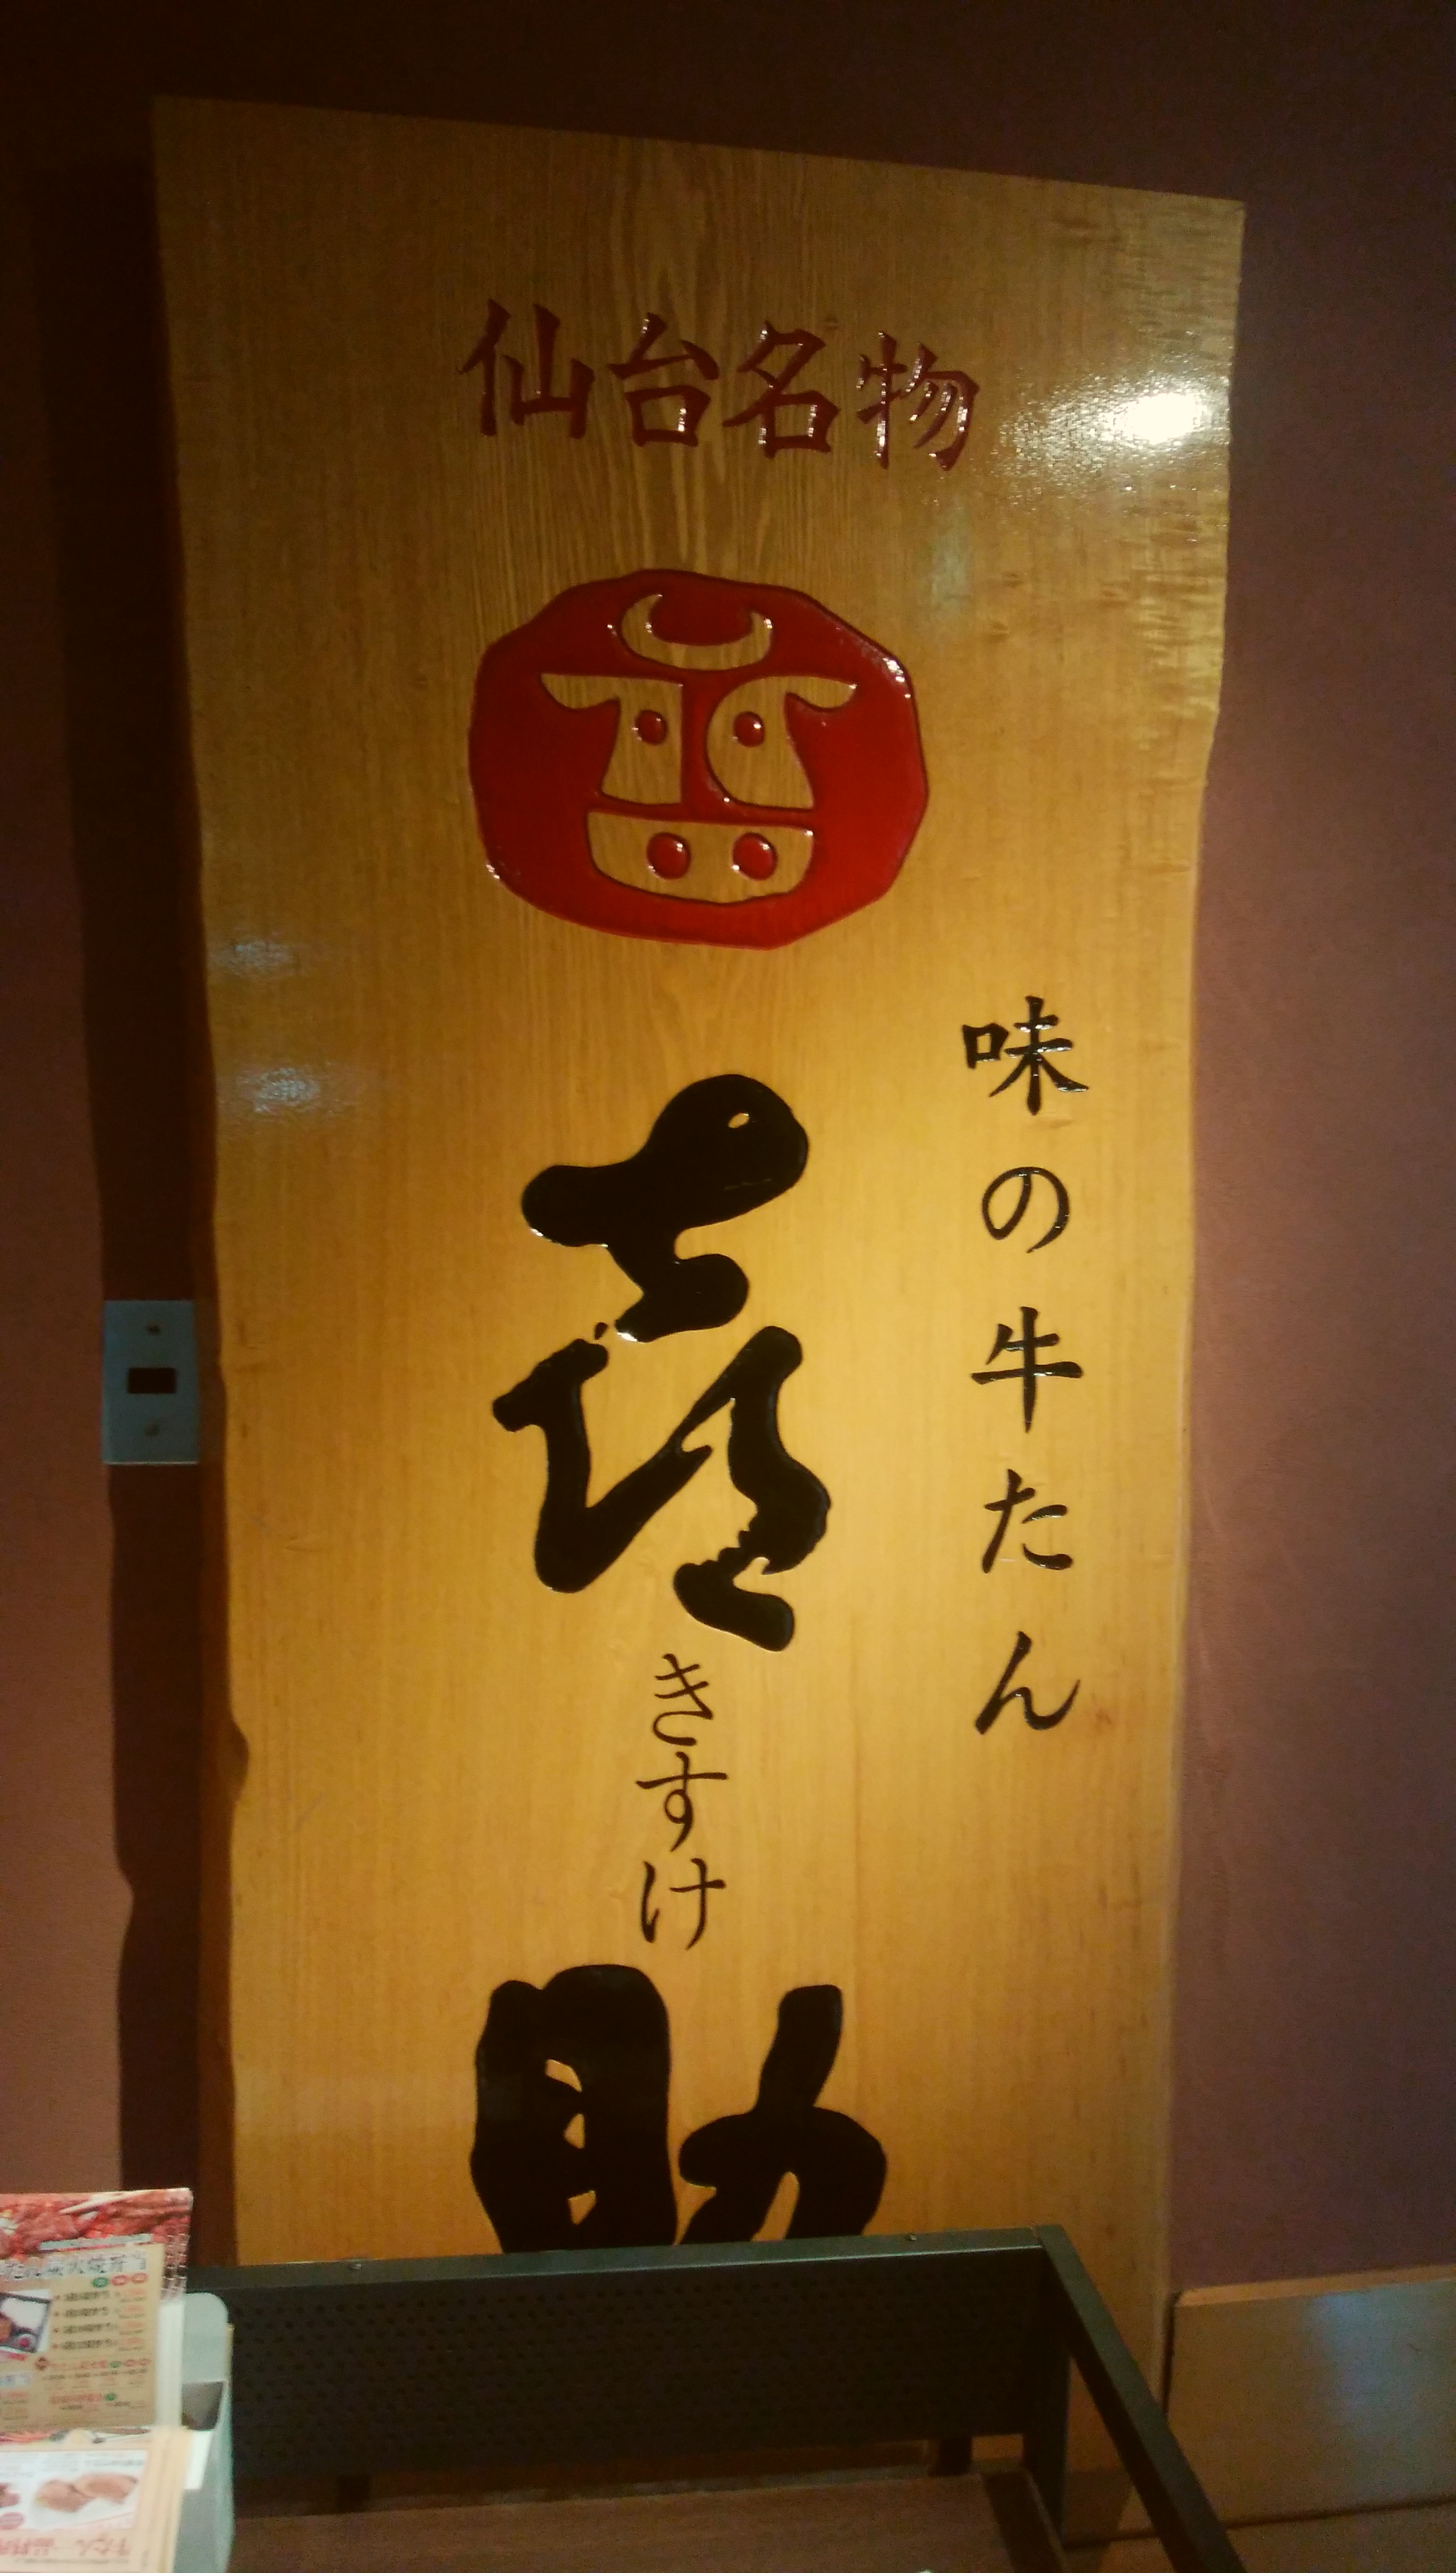 仙台名物
味の牛たん
喜助
きすけ